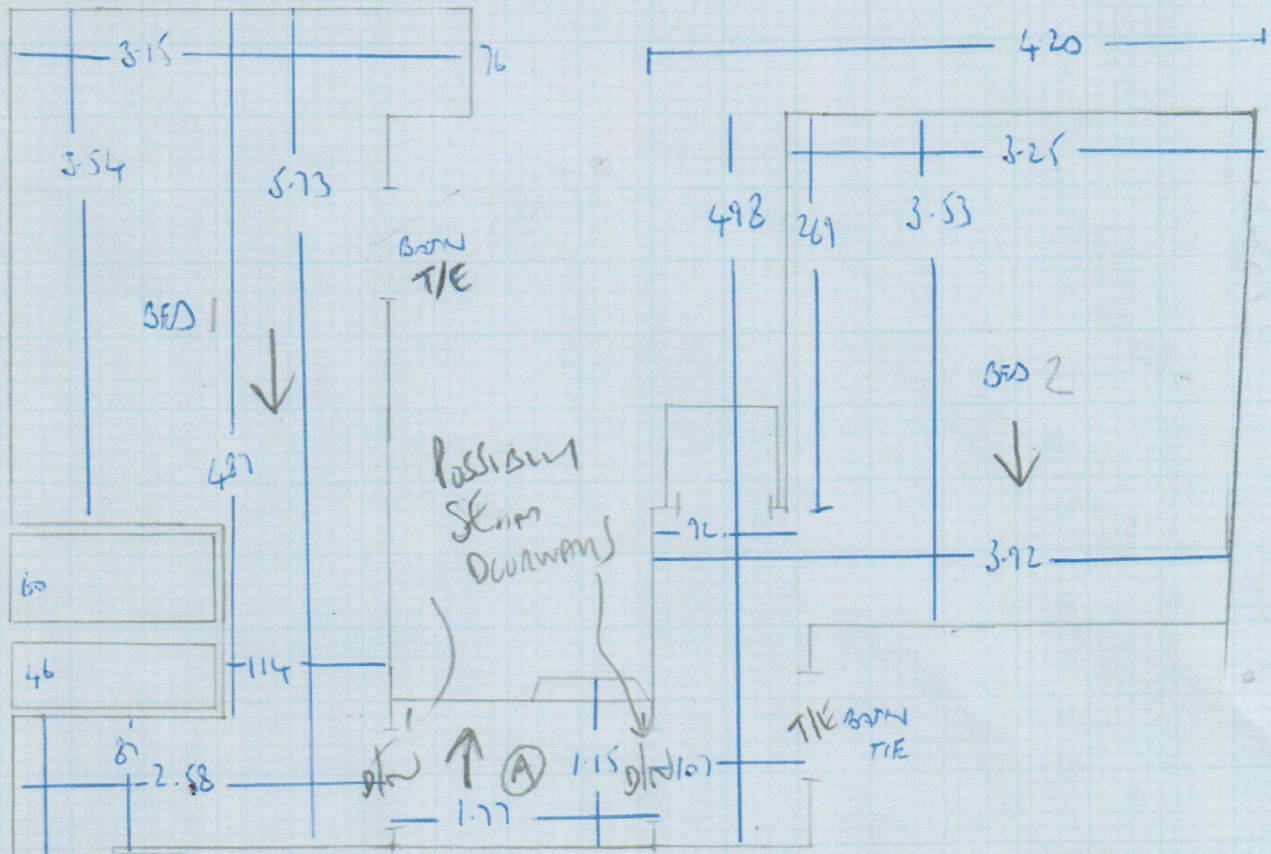 3.15
76
4.20
3.54
5.73
498
269
3.53
3.25
BATH
T/E
BED 1
BED 2
POSSIBLY
SEAM
DOORWAYS
92
3.92
60
46
114
87
2.58
D/W
A
1.15
D/W
107
1.77
T/E BATH
T/E